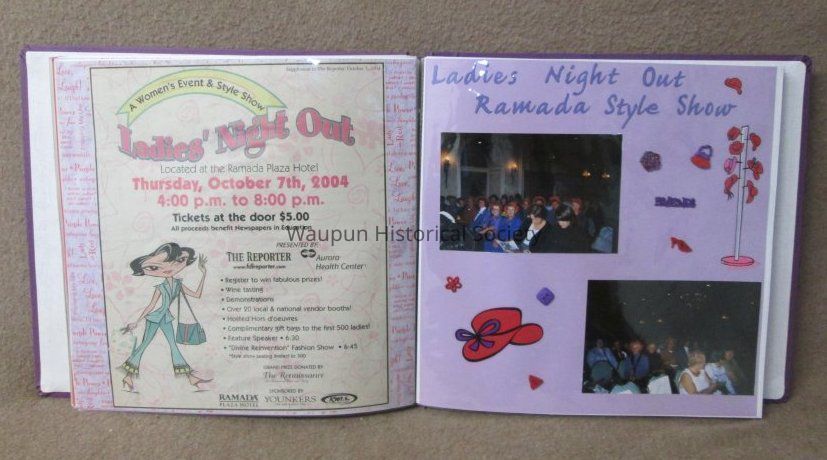 Supplement to The Reporter October 3, 2004
A Women's Event & Style Show
Ladies' Night Out
Located at the Ramada Plaza Hotel
Thursday, October 7th, 2004
4:00 p.m. to 8:00 p.m.
Tickets at the door $5.00
All proceeds benefit Newspapers in Education
PRESENTED BY:
THE REPORTER
www.fdlreporter.com
Aurora
Health Center
• Register to win fabulous prizes!
• Wine tasting
• Demonstrations
• Over 20 local & national vendor booths!
• Heated Hors d'oeuvres
• Complimentary gift bags to the first 500 ladies!
• Feature Speaker • 6:30
• "Divine Reinvention" Fashion Show • 6:45
*Style show seating limited to 300
GRAND PRIZE DONATED BY
The Renaissance
SPONSORED BY
RAMADA
PLAZA HOTEL
YOUNKERS
Ladies Night Out
Ramada Style Show
FRIENDS
Waupun Historical Society